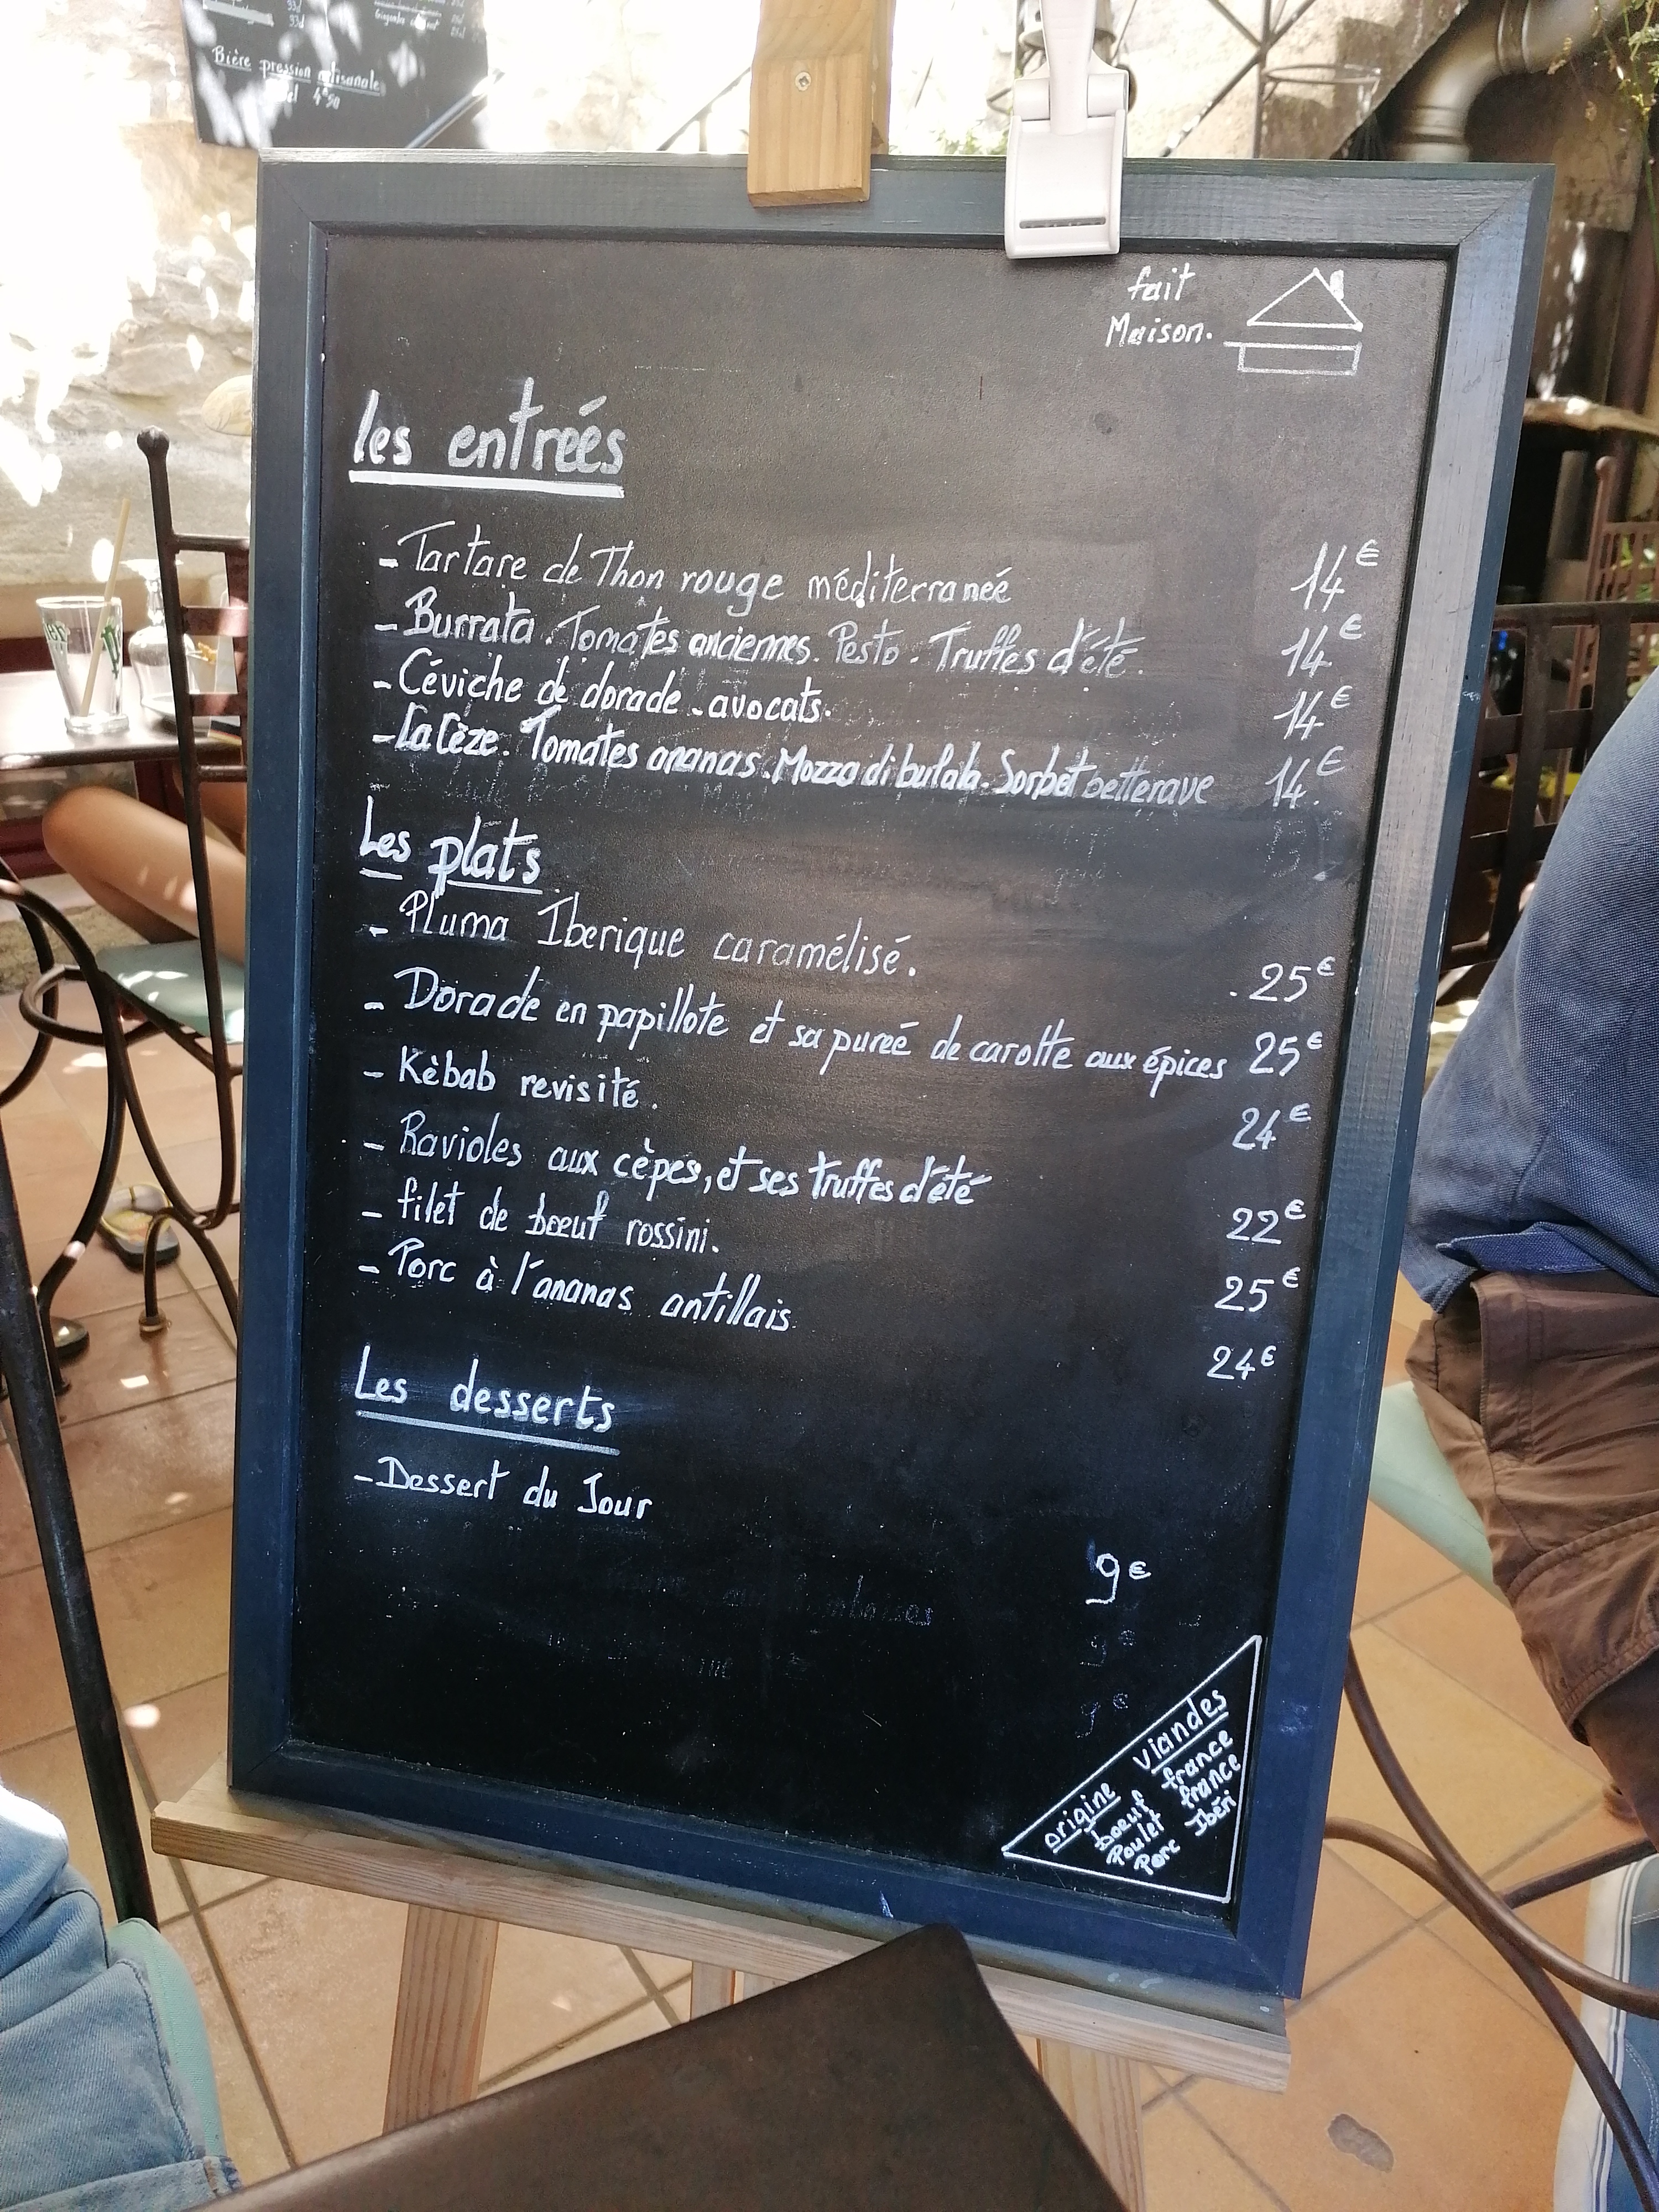 33cl
33cl
Bière pression artisanale
4€50
fait
Maison.
les entreés
- Tartare de Thon rouge méditerraneé 14€
- Burrata . Tomates anciennes. Pesto - Truffes d'été. 14€
- Céviche de dorade - avocats. 14€
- La Cèze. Tomates ananas. Mozza di bufala. Sorbet betterave 14€
Les plats
- Pluma Iberique caramélisé. 25€
- Dorade en papillote et sa pureé de carotte aux épices 25€
- Kèbab revisité. 24€
- Ravioles aux cèpes, et ses truffes d'été 22€
- filet de boeuf rossini. 25€
- Porc à l'ananas antillais 24€
Les desserts
- Dessert du Jour
9€
9€
9€
origine viandes
boeuf france
Poulet france
Porc Ibéri